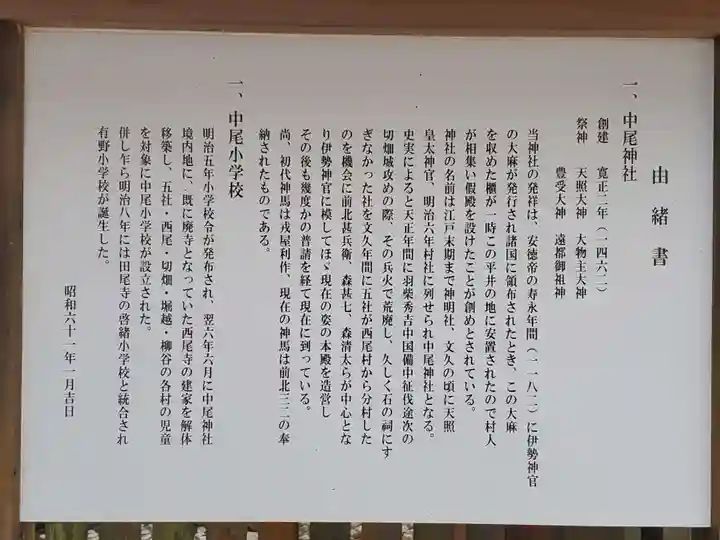 由緒書
一、中尾神社
創建 寛正二年（一四六二）
祭神 天照大神 大物主大神
豊受大神 遠都御祖神
当神社の発祥は、安徳帝の寿永年間（一一八二）に伊勢神官
の大麻が発行され諸国に領布されたとき、この大麻
を収めた櫃が一時この平井の地に安置されたので村人
が相集い假殿を設けたことが創めとされている。
神社の名前は江戸末期まで神明社、文久の頃に天照
皇太神官、明治六年村社に列せられ中尾神社となる。
史実によると天正年間に羽柴秀吉中国備中征伐途次の
切畑城攻めの際、その兵火で荒廃し、久しく石の祠にす
ぎなかった社を文久年間に五社が西尾村から分村した
のを機会に前北甚兵衛、森甚七、森清太らが中心とな
り伊勢神官に模してほゞ現在の姿の本殿を造営し
その後も幾度かの普請を経て現在に到っている。
尚、初代神馬は戎屋利作、現在の神馬は前北三二の奉
納されたものである。
一、中尾小学校
明治五年小学校令が発布され、翌六年六月に中尾神社
境内地に、既に廃寺となっていた西尾寺の建家を解体
移築し、五社・西尾・切畑・堀越・柳谷の各村の児童
を対象に中尾小学校が設立された。
併し乍ら明治八年には田尾寺の啓緒小学校と統合され
有野小学校が誕生した。
昭和六十一年一月吉日